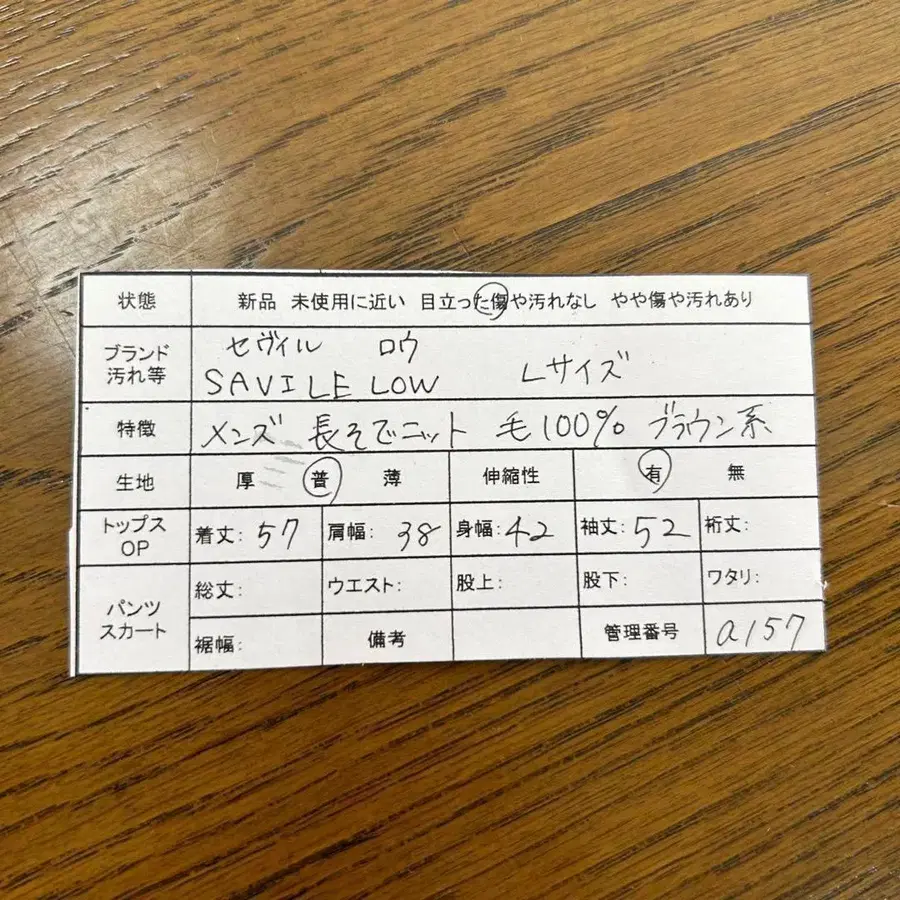 状態 新品 未使用に近い 目立った傷や汚れなし やや傷や汚れあり
ブランド セヴィル ロウ
汚れ等 SAVILE LOW Lサイズ
特徴 メンズ 長そでニット 毛100% ブラウン系
生地 厚 普 薄 伸縮性 有 無
トップス OP 着丈: 57 肩幅: 38 身幅: 42 袖丈: 52 裄丈:
パンツ スカート 総丈: ウエスト: 股上: 股下: ワタリ:
裾幅: 備考 管理番号 a157